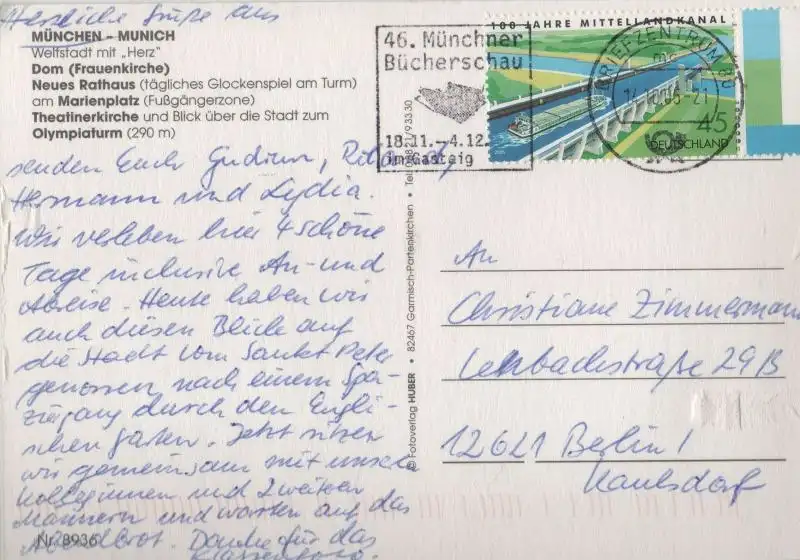 Herzliche Grüße aus
MÜNCHEN – MUNICH
Weltstadt mit „Herz"
Dom (Frauenkirche)
Neues Rathaus (tägliches Glockenspiel am Turm)
am Marienplatz (Fußgängerzone)
Theatinerkirche und Blick über die Stadt zum
Olympiaturm (290 m)
senden Euch Gudrun, Rita
Hermann und Lydia.
Wir verleben hier 4 schöne
Tage inclusive An- und
Abreise. Heute haben wir
auch diesen Blick auf
die Stadt vom Sankt Peter
genossen nach einem Spa-
ziergang durch den Engli-
schen Garten. Jetzt sitzen
wir gemeinsam mit unseren
Kolleginnen und 2 weiteren
Männern und warten auf das
Abendbrot. Danke für das
Klassenfoto.
Nr. 8936
© Fotoverlag HUBER • 82467 Garmisch-Partenkirchen • Tel. 08821/93330
46. Münchner
Bücherschau
18.11.-4.12.
im Gasteig
100 JAHRE MITTELLANDKANAL
45
DEUTSCHLAND
BRIEFZENTRUM 80
-21
An
Christiane Zimmermann
Lenbachstraße 29B
12621 Berlin /
Kaulsdorf